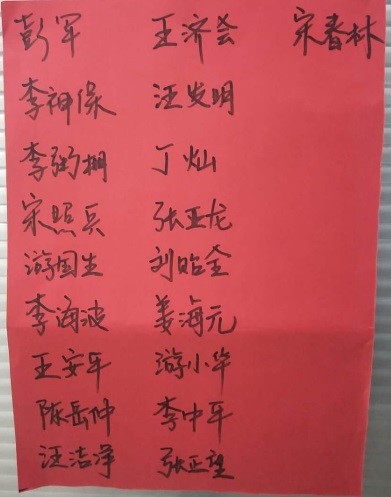 彭军 王济会 宋春林
李神保 汪发明
李弼棚 丁灿
宋照兵 张亚龙
游国生 刘贻全
李海波 姜海元
王安年 游小华
陈岳仲 李中年
汪洁净 张正望